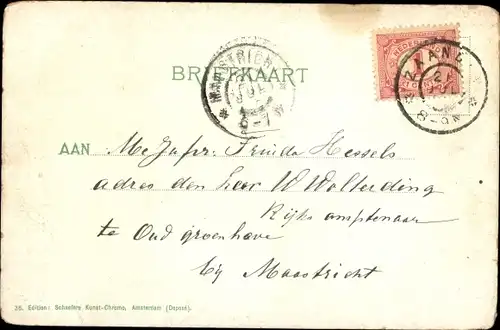 BRIEFKAART
MAASTRICHT
6-7
NEDERLAND
ZAND
21
8-9
AAN Mejufr: Frieda Hessels
adres den Heer W Wolterding
Rijks amptenaar
te Oud groenhove
bij Maastricht
26. Edition: Schnellers Kunst-Chromo, Amsterdam (Deposé).